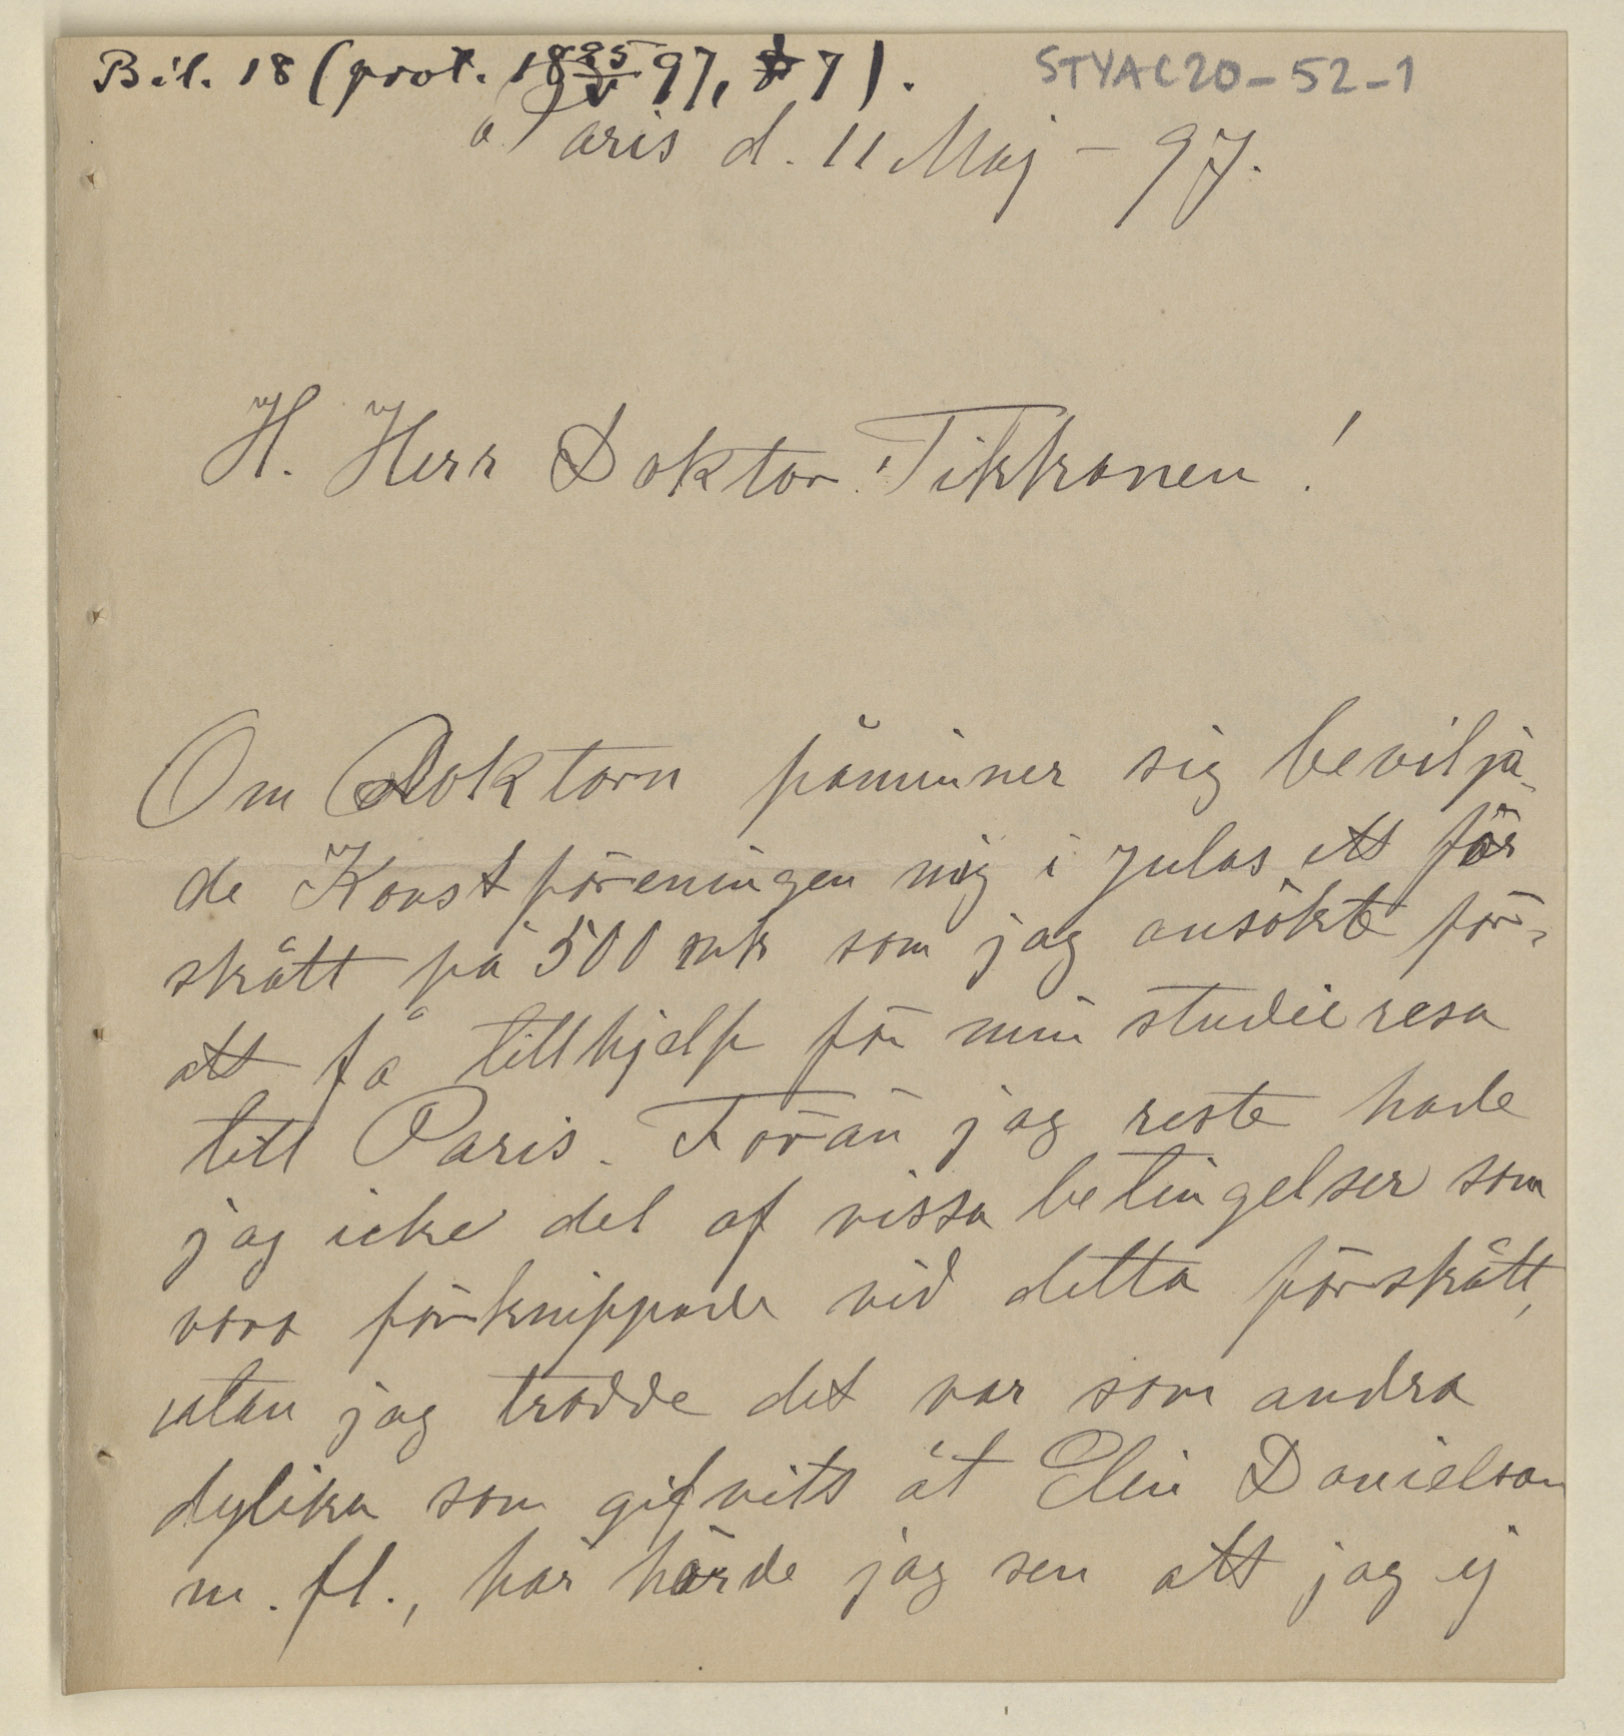 Bil. 18 (prot. 18 25/V 97, § 7).
STYAC20-52-1
Paris d. 11 Maj - 97.
H. Herr Doktor Tikkanen!
Om Doktorn påminner sig beviljа-
de Konstföreningen mig i julas ett för
skått på 500 mk som jag ansökte för
att få tillhjelp för min studieresa
till Paris. Förän jag reste hade
jag icke del af vissa betingelser som
voro förknippade vid detta förskått,
utan jag trodde det var som andra
dylika som gifvits åt Elin Danielson
m. fl., här hörde jag sen att jag ej